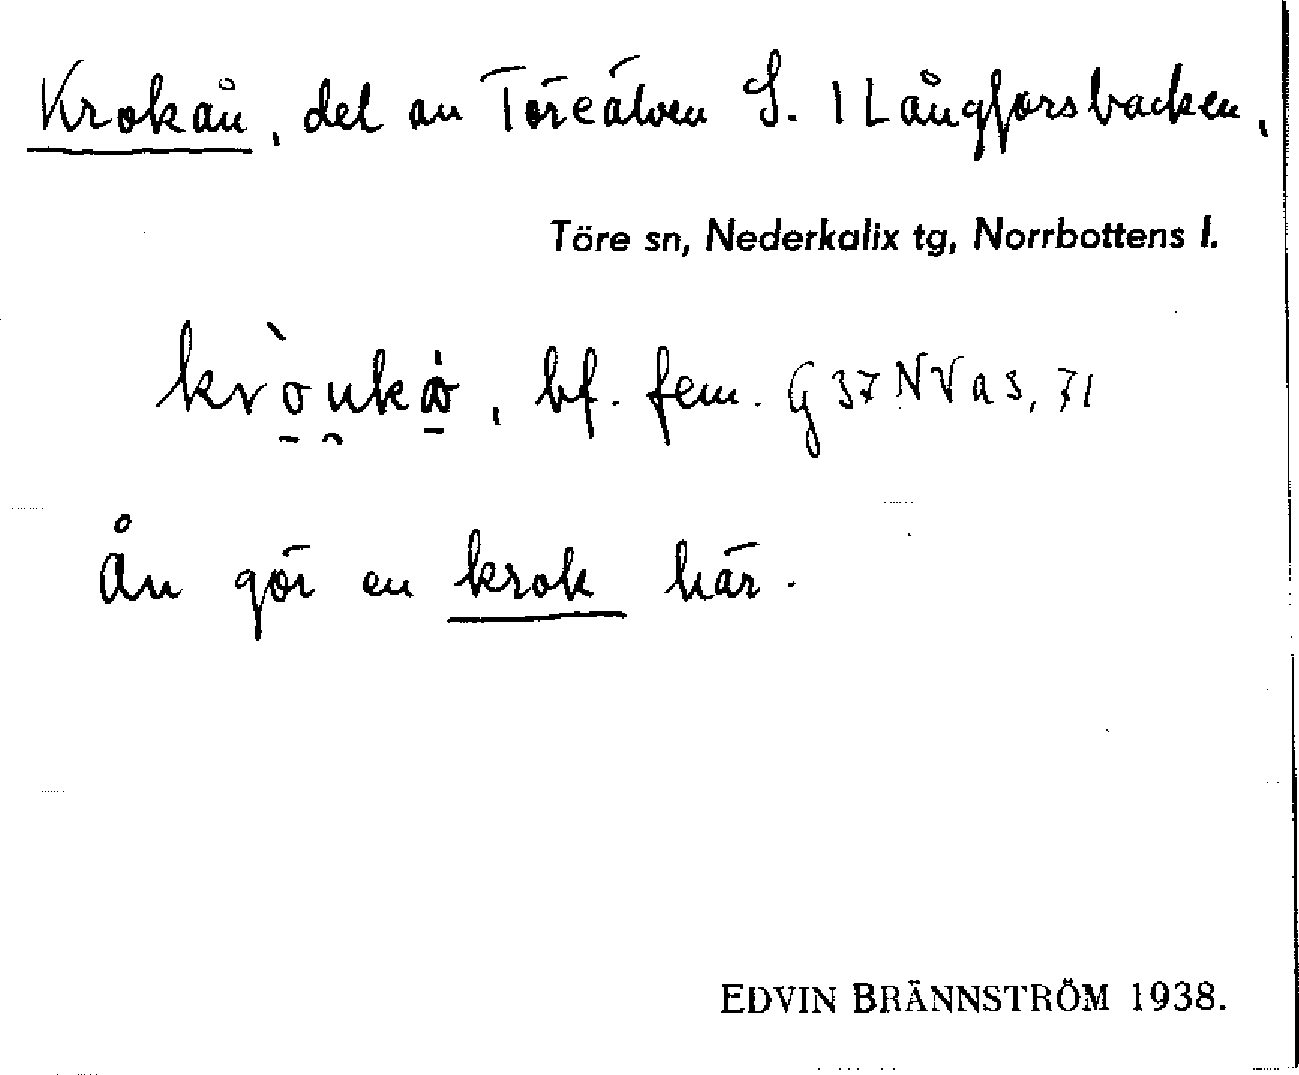 Krokån, del av Töreälven S. 1 Långforsbacken,
Töre sn, Nederkalix tg, Norrbottens l.
kròukå̇, bf. fem. G 37 NV a 3, 71
Ån gör en krok här.
EDVIN BRÄNNSTRÖM 1938.